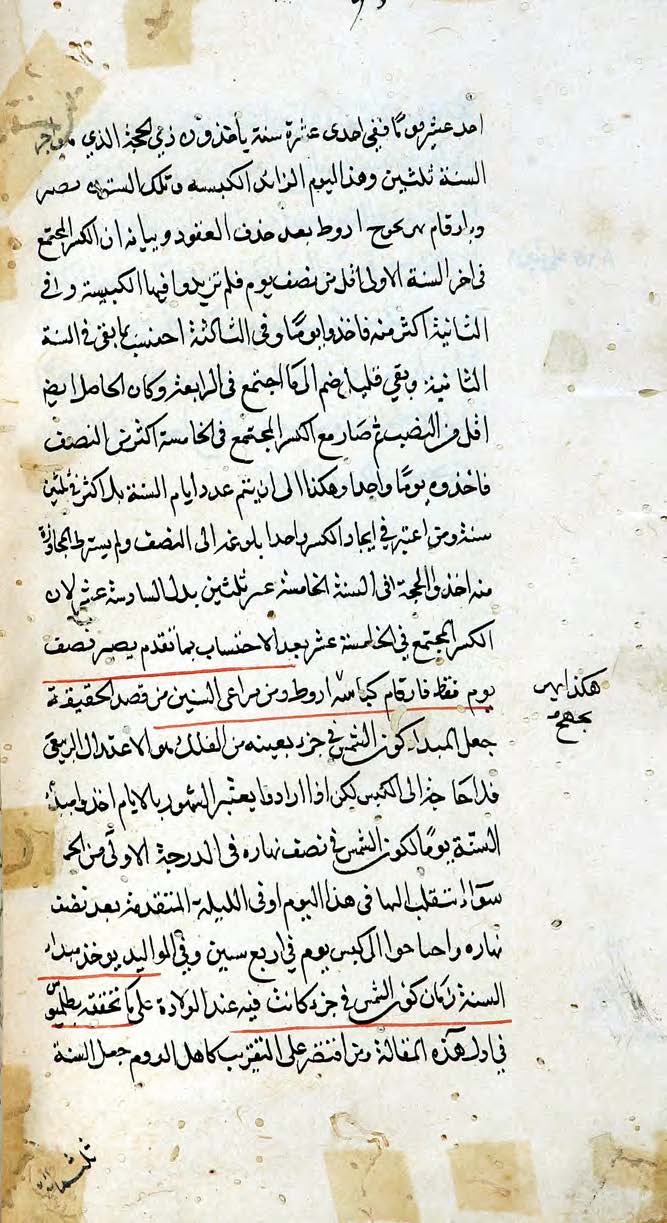 احد عشر يوما ففى احدى عشرة سنة يأخذون ذي الحجة الذي هو آخر
السنة ثلثين وهذا اليوم الزائد الكبيسه وتلك السنين
وبارقام بهزيجوح ادوط بعد حذف العقود وبيانه ان الكسر المجتمع
فى اخر السنة الاولى اقل من نصف يوم فلم يزيدوا فيها الكبيسة وفى
الثانية اكثر منه فاخذوا يوما وفى الثالثة احتسب بما بقى فى السنة
الثانية وبقي قليل ضم الى ما اجتمع فى الرابعة وكان الحاصل ايض
اقل من النصف ثم صار مع الكسر المجتمع فى الخامسة اكثر من النصف
فاخذوه يوما واحدا وهكذا الى ان يتم عدد ايام السنة بلا كسر فى ثلثين
سنة ومن اعتبر فى ايجاد الكسر واحدا بلوغه الى النصف ولم يشترط المجاوزة
منه اخذ ذو الحجة فى السنة الخامسة عشر ثلثين بدل السادسة عشر لان
الكسر المجتمع فى الخامسة عشر بعد الاحتساب بما تقدم يصير نصف
يوم فقط فارقام كبائسه ادوط ومن مراعى السنين من قصد الحقيقية
جعل المبدا كون الشمس فى جزء بعينه من الفلك هو الاعتدال الربيعى
فلا حاجة الى الكبس لكن اذا ارادوا يعتبر الشهور بالايام اخذوا مبدأ
السنة يوما لكون الشمس فى نصف نهاره فى الدرجة الاولى من الحمل
سواء انتقلت اليها فى هذا اليوم او فى الليلة المتقدمة بعد نصف
نهاره واحتاجوا الى كبس يوم فى اربع سنين وفى المواليد يوخذ مبداء
السنة زمان كون الشمس فى جزء كانت فيه عند الولادة على ما تحققته بطلميوس
فى اول هذه المقالة ومن اقتصر على التقريب كاهل الروم جعل السنة
هكذا بهز
يجهح
ثلثمائة